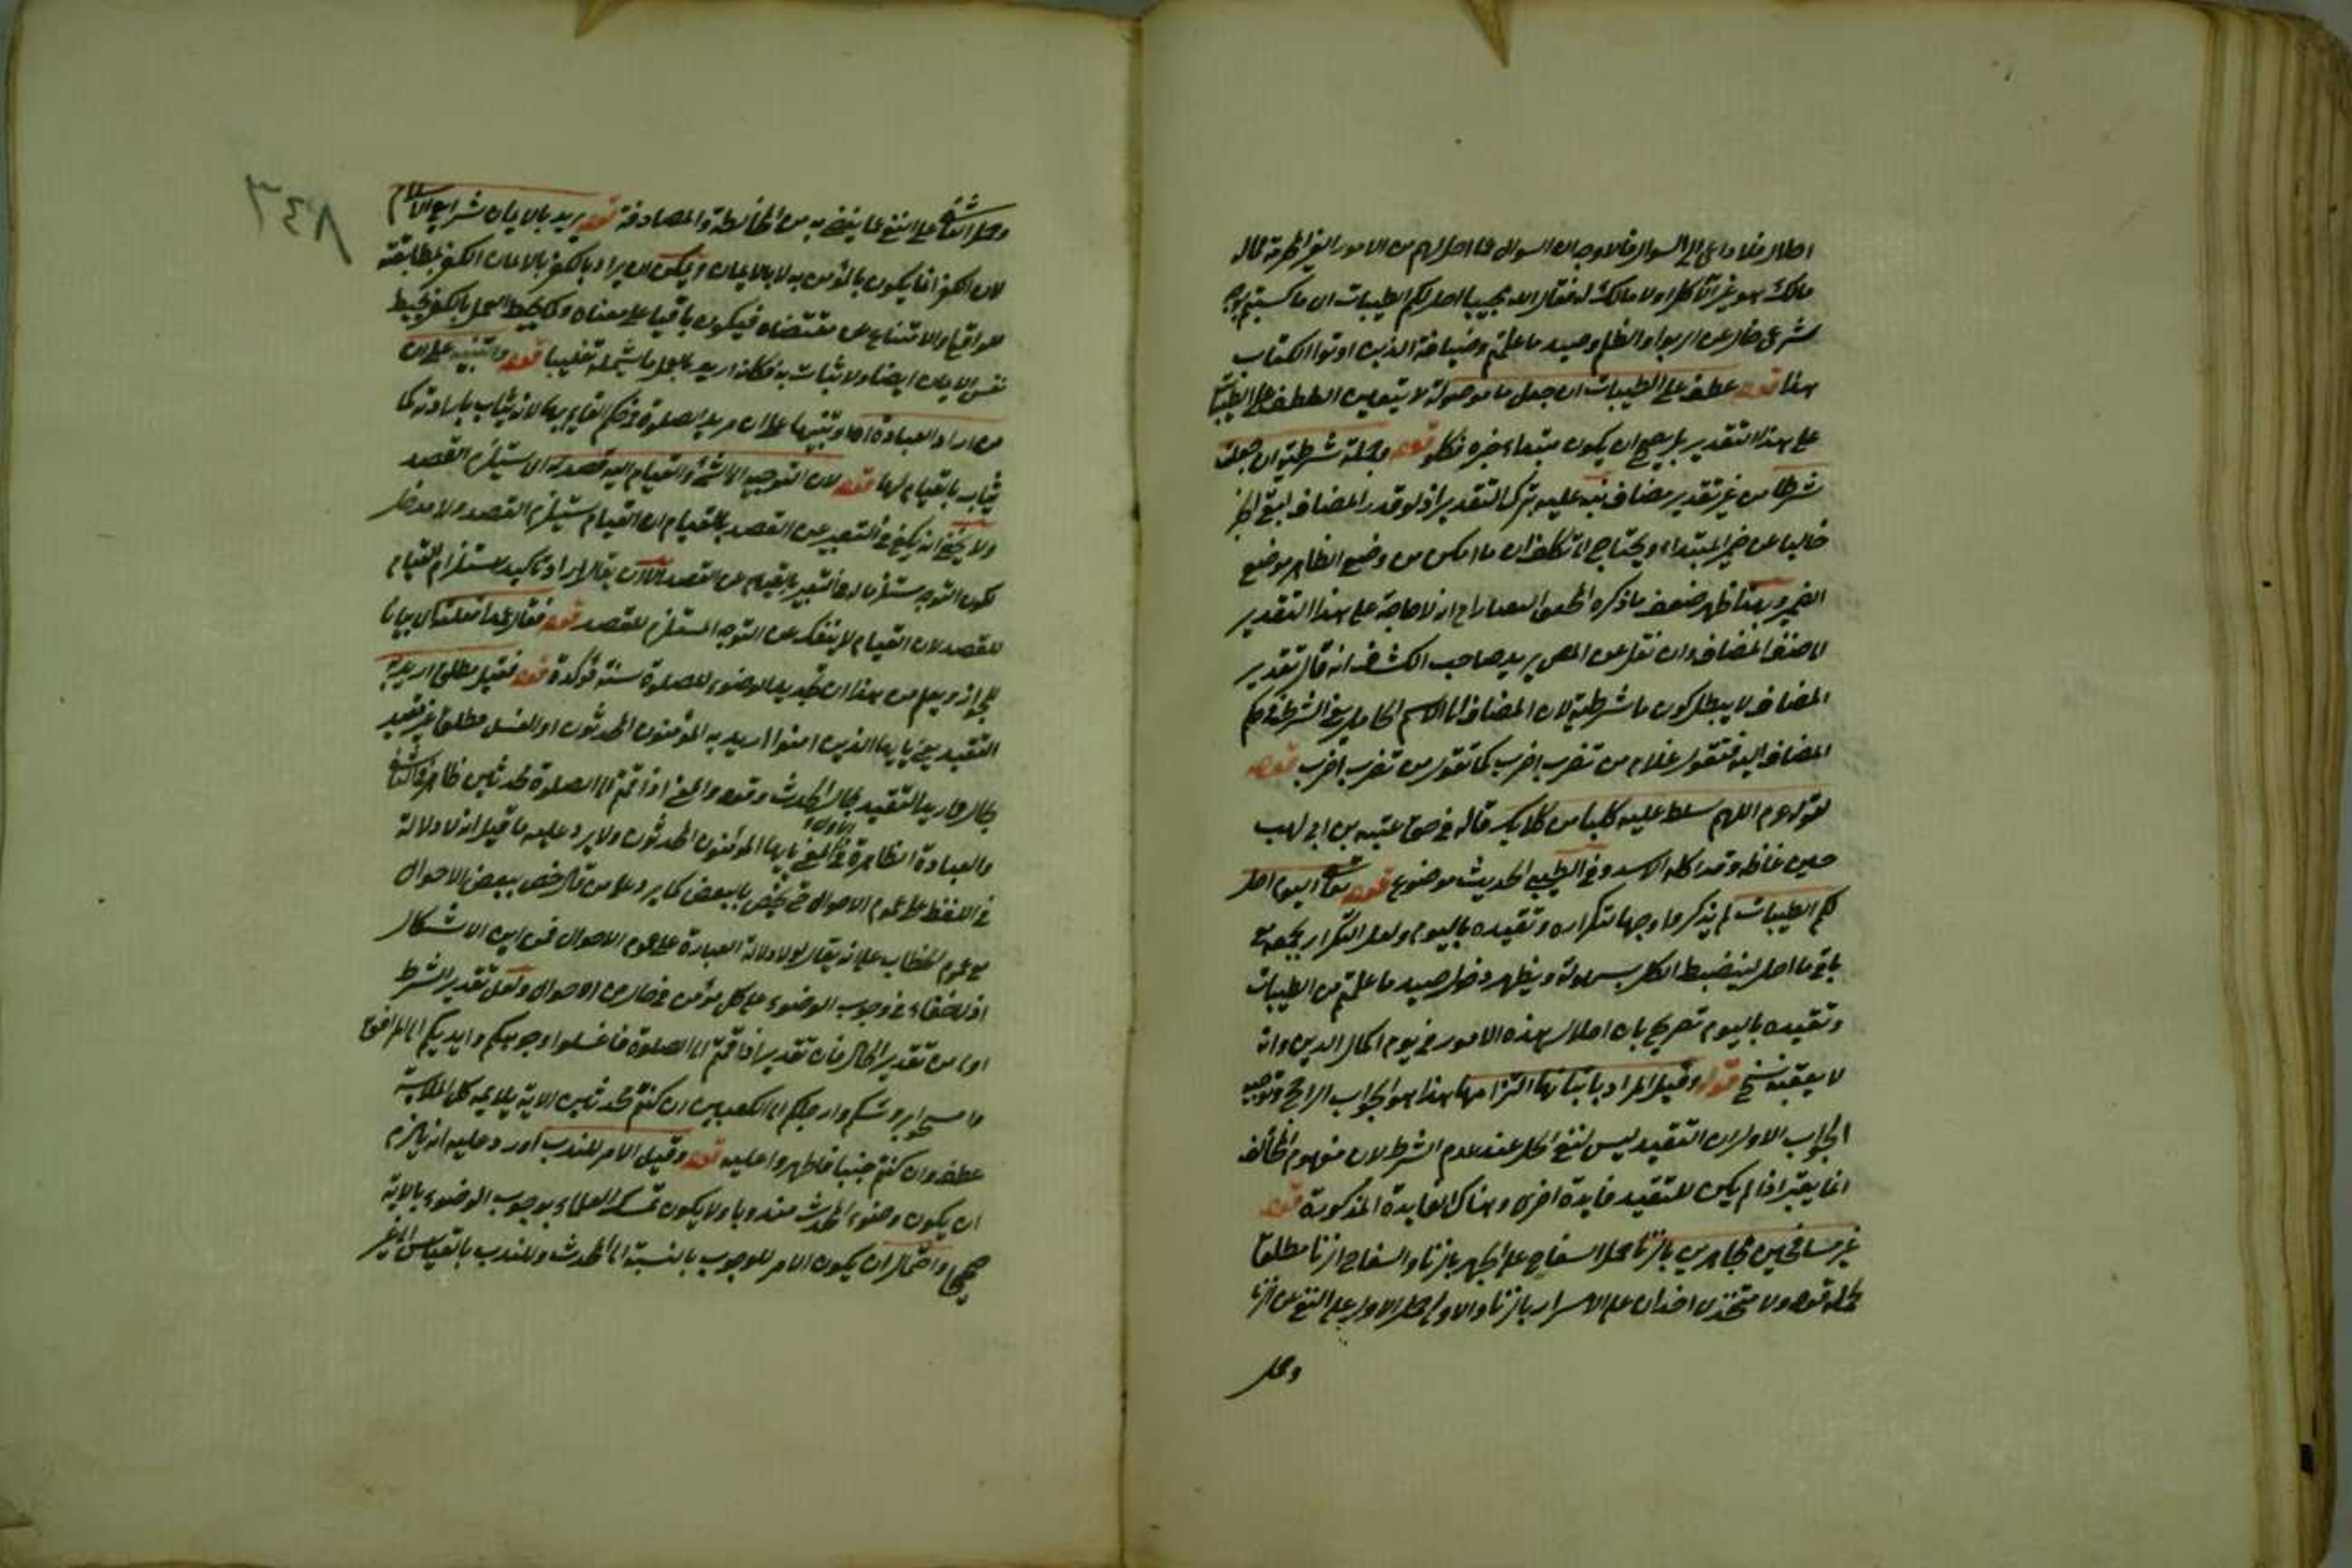 احلال فلا داعي الى السؤال فالاوجه ان السؤال عما احل لهم من الامور الغير المحرمة مما له
مالك هو غير الآكل او لا مالك له فقال الله مجيبا احل لكم الطيبات اى ما كسبتم بوجه
شرعى خال عن الربوا والظلم وصيد ما علمتم وضيافة الذين اوتوا الكتاب
هذا قوله عطف على الطيبات ان جعل ما موصولة لا يتعين العطف على الطيبات
على هذا التقدير بل يصح ان يكون مبتداء خبره فكلوا قوله وجملة شرطية ان جعلت
شرطا من غير تقدير مضاف نبه عليه بترك التقدير اذ لو قدر المضاف لبقى الجزاء
خاليا عن ضمير المبتداء ويحتاج الى تكلف ان ما امسكن من وضع الظاهر موضع
الضمير وبهذا ظهر ضعف ما ذكره المحقق التفتازانى انه لا حاجة على هذا التقدير
الى حذف المضاف وان نقل عن المص يريد صاحب الكشاف انه قال تقدير
المضاف لا يبطل كون ما شرطية لان المضاف الى الاسم الحامل معنى الشرط فى حكم
المضاف اليه فتقول غلام من تضرب اضرب كما تقول من تضرب اضرب قوله
لقوله عم اللهم سلط عليه كلبا من كلابك قاله فى حق عتبة بن ابى لهب
حين غاظه وقد اكله الاسد وفى الطيبى الحديث موضوع قوله تعالى اليوم احل
لكم الطيبات لم يذكروا وجها لتكراره وتقييده باليوم ولعل التكرار بجمعه مع
باقى ما احل لينضبط الكل بسهولة ويظهر دخول صيد ما علمتم من الطيبات
وتقييده باليوم تصريح بان احلال هذه الامور فى يوم اكمال الدين وانه
لا يعقبه نسخ قوله وقيل المراد باتيانها التزامها هذا هو الجواب الراجح وتوجيه
الجواب الاول ان التقييد ليس لنفى الحل عند عدم الشرط لان مفهوم المخالف
انما يعتبر اذا لم يكن للتقييد فايدة اخرى وهناك الفايدة المذكورة قوله
غير مسافحين مجاهرين بالزنا حمل السفاح على الجهر بالزنا والسفاح الزنا مطلقا
لحمله قوله ولا متخذى اخدان على الاسرار بالزنا والاولى حمل الاول على النهى عن الزنا
وحمل
وحمل الثانى على النهى عما يفضى به من المخالطة والمصادقة قوله يريد بالايمان شرايع الاسلام
لان الكفر انما يكون بالمؤمن به لا بالايمان ويمكن ان يراد بالكفر بالايمان الكفر بمطابقته
للواقع والامتناع عن مقتضاه فيكون باقيا على معناه وكما يحبط العمل بالكفر يحبط
نفس الايمان ايضا ولا ثبات به فكانه اريد بالعمل ما يشمله تغليبا قوله والتنبيه على ان
من اراد العبادة اه وتنبيها على ان مريد الصلوة فى حكم القايم بها لانه يثاب بارادته كما
يثاب بالقيام لها قوله لان التوجه الى الشئ والقيام اليه قصد له اى يستلزم القصد
ولا يخفى انه يكفى فى التعبير عن القصد بالقيام ان القيام يستلزم القصد ولا مدخل
لكون التوجه مستلزما له فى التعبير بالقيام عن القصد الا ان يقال اراد تاكيد استلزام القيام
للقصد لان القيام لا ينفك عن التوجه المستلزم للقصد قوله فقال عمدا فعلته اى بيانا
للجواز ويعلم من هذا ان تجديد الوضوء للصلوة سنة مؤكدة قوله فقيل مطلق اريد به
التقييد يعنى يا يها الذين امنوا اريد به المؤمنون المحدثون او الغسل مطلق غير مقيد
بحال واريد التقييد بحال الحدث وقوله والمعنى اذا قمتم الى الصلوة محدثين ظاهر فى الثانى
والعبادة الظاهرة فى الاول المعنى يا يها المؤمنون المحدثون ولا يرد عليه ما قيل انه لا دلالة
فى اللفظ على عموم الاحوال حتى يخص بالبعض كما يرد على من قال خص ببعض الاحوال
مع عموم الخطاب على انه يقال لولا دلالة العبارة على عموم الاحوال فمن اين الاشكال
اذ لا خفاء فى وجوب الوضوء على كل مؤمن فى حال من الاحوال ولعل تقدير الشرط
اولى من تقدير الحال فان تقدير اذا قمتم الى الصلوة فاغسلوا وجوهكم وايديكم الى المرافق
وامسحوا برؤسكم وارجلكم الى الكعبين ان كنتم محدثين الاية يلايمه كل الملايمة
عطف وان كنتم جنبا فاطهروا عليه قوله وقيل الامر للندب اورد عليه انه يلزم
ان يكون وضوء المحدث مندوبا ولا يكون تمسك العلماء بوجوب الوضوء بالاية
صحيحا واحتمال ان يكون الامر للوجوب بالنسبة الى المحدث وللندب بالقياس الى غير